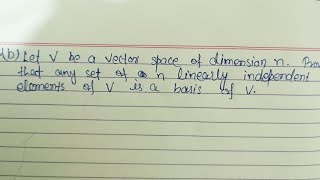 (b) Let V be a vector space of dimension n. Prov
that any set of n linearly independent
elements of V is a basis of V.